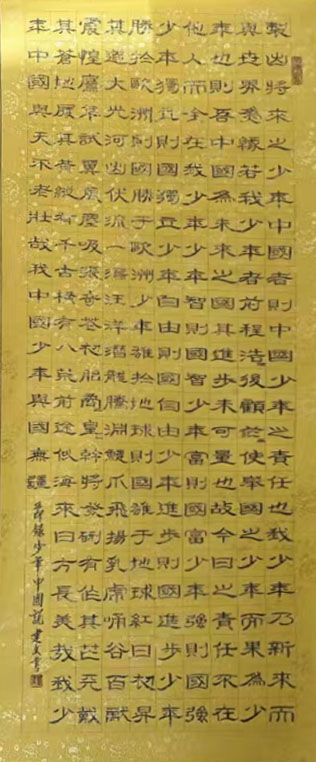 製出將來之少年中國者則中國少年之責任也我少年乃新來而
與世界為緣若我少年者前程浩〻後顧茲〻使舉國之少年而果為少
年也則吾中國為未來之國其進步未可量也故今日之責任不在
他人而全在我少年少年智則國智少年富則國富少年強則國強
少年獨立則國獨立少年自由則國自由少年進步則國進步少年
勝於歐洲則國勝于歐洲少年雄於地球則國雄于地球紅日初昇
其道大光河出伏流一瀉汪洋潛龍騰淵鱗爪飛揚乳虎嘯谷百獸
震惶鷹隼試翼風塵吸張奇花初胎矞皇幹將發硎有作其芒天戴
其蒼地履其黃縱有千古橫有八荒前途似海來日方長美哉我少
年中國與天不老壯哉我中國少年與國無疆
節錄少年中國說建文書